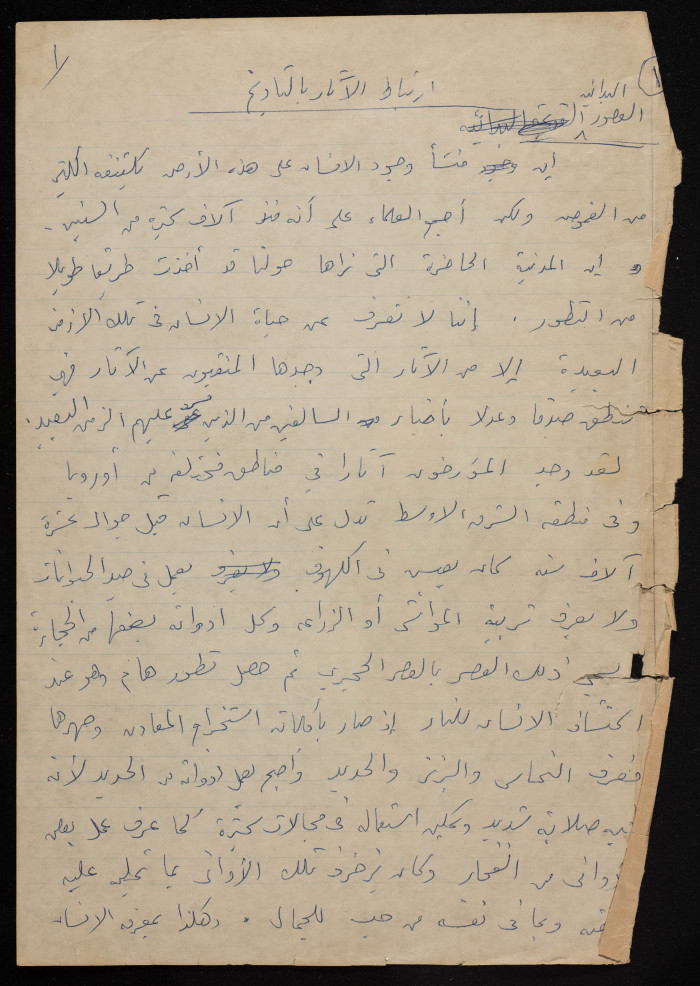 ١
ارتباط الآثار بالتاريخ
البدائية
العصور
إن منشأ وجود الانسان على هذه الأرض يكتنفه الكثير
من الغموض ولكن أجمع العلماء على أنه منذ آلاف كثيرة من السنين.
و إن المدنية الحاضرة التي نراها حولنا قد أخذت طريقا طويلا
من التطور . إننا لا نعرف عن حياة الانسان في تلك الازمن
البعيدة إلا من الآثار التي وجدها المنقبون عن الآثار فهي
تنطق صدقا وعدلا بأخبار السالفين من الذين مر عليهم الزمن البعيد.
لقد وجد المؤرخون آثارا في مناطق مختلفة من أوروبا
وفي منطقة الشرق الاوسط تدل على أن الانسان قبل حوالي عشرة
آلاف سنه كان يعيش في الكهوف ولا يعرف يعمل في صيد الحيوانات
ولا يعرف تربية المواشي أو الزراعه وكل ادواته يصنعها من الحجارة
ذلك العصر بالعصر الحجري ثم حصل تطور هام وهو عند
اكتشاف الانسان للنار إذ صار بأمكانه استخراج المعادن وصهرها
فعرف النحاس والبرنز والحديد وأصبح يعمل ادواته من الحديد لأنه
فيه صلابة شديد ويمكن استعماله في مجالات كثيرة كما عرف عمل بعض
أواني من الفخار وكان يزخرف تلك الأواني بما تمليه عليه
وبما في نفسه من حب للجمال . وهكذا بمعرفة الانسان